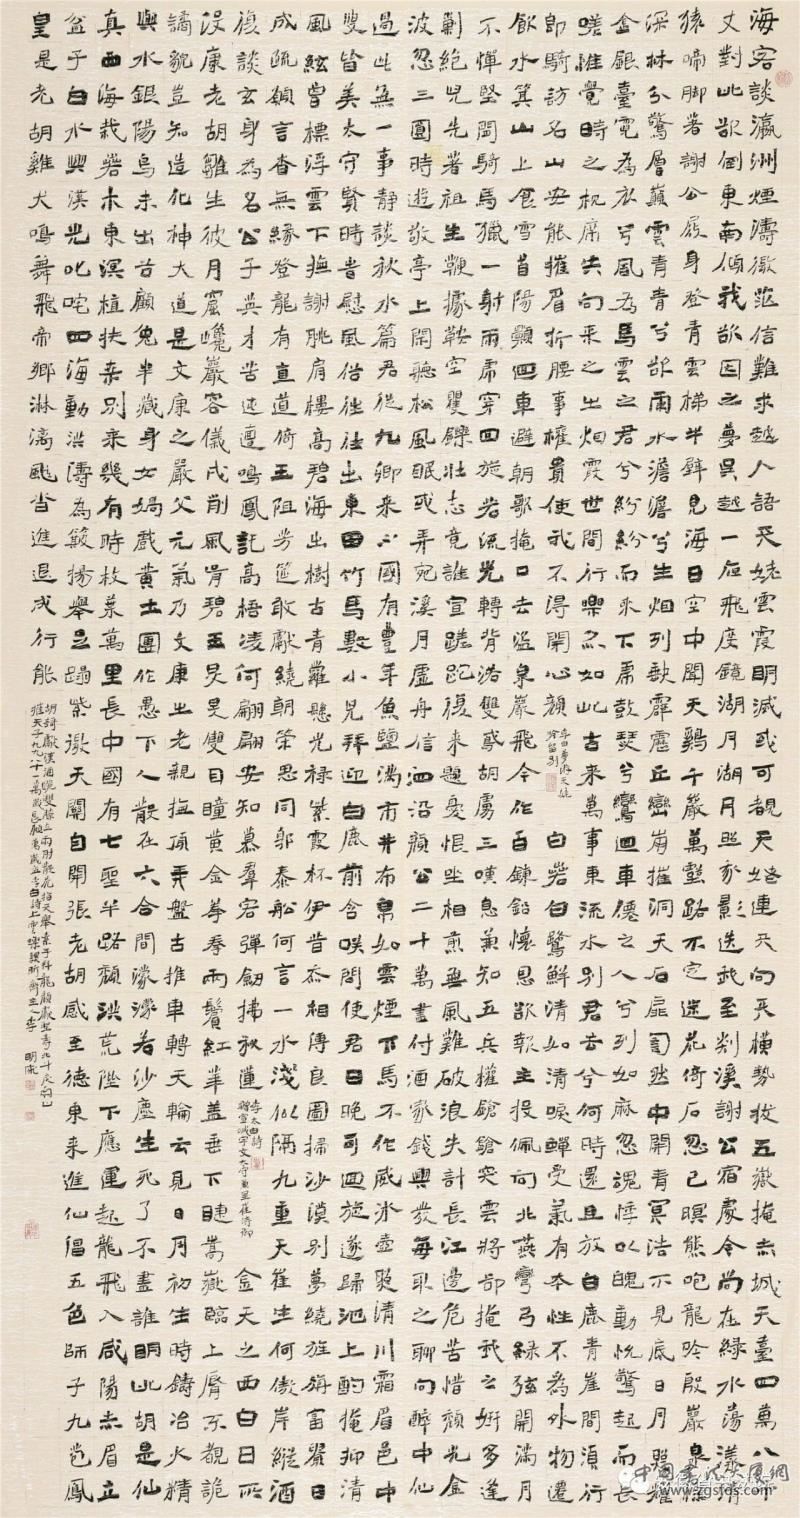 海客談瀛洲煙濤微茫信難求越人語天姥雲霞明滅或可覩天姥連天向天橫勢拔五嶽掩赤城天臺四萬八千
丈對此欲倒東南傾我欲因之夢吳越一夜飛度鏡湖月湖月照我影送我至剡溪謝公宿處今尚在綠水蕩漾清
猿啼脚著謝公屐身登青雲梯半壁見海日空中聞天鷄千巖萬壑路不定迷花倚石忽已暝熊咆龍吟殷巖泉慄
深林兮驚層巔雲青青兮欲雨水澹澹兮生烟列缺霹靂丘巒崩摧洞天石扉訇然中開青冥浩不見底日月照耀
金銀臺霓為衣兮風為馬雲之君兮紛紛而來下虎鼓瑟兮鸞迴車僊之人兮列如麻忽魂悸以魄動怳驚起而長
嗟惟覺時之枕席失向來之烟霞世間行樂亦如此古來萬事東流水別君去兮何時還且放白鹿青崖間須行
即騎訪名山安能摧眉折腰事權貴使我不得開心顏
李白夢游天姥
吟留別
白若白鷺鮮清如清唳蟬受氣有本性不為外物遷
飲水箕山上食雪首陽顛迴車避朝歌掩口去盜泉巖飛今作百鍊鉛懷恩欲報主投佩向北燕彎弓綠弦開滿月
不憚堅閑騎馬獵一射兩虎穿迴旋若流光轉背落雙鳶胡虜三嘆息兼知五兵權鎗鎗突雲將却掩我之妍多逢
剿絕兒先著祖生鞭據鞍空矍鑠壯志竟誰宣蹉跎復來題憂恨坐相煎無風難破浪失計長江邊危苦惜頹光金
波忽三圓時遊敬亭上閑聽松風眠或弄宛溪月虛舟信洄沿顏公二十萬盡付酒家錢興發每取之聊向醉中仙
過此無一事靜談秋水篇君從九卿來水國有豐年魚鹽滿市井布帛如雲煙下馬不作威冰壺照清川霜眉邑中
叟皆美太守賢時時慰風俗往往出東田竹馬數小兒拜迎白鹿前含笑問使君日晚可迴旋遂歸池上酌掩抑清
風絃曾標浮雲下撫謝朓肩樓高碧海出樹古青蘿懸光祿紫霞杯伊昔忝相傳良圖掃沙漠別夢繞旌旃富貴日
成疏願言杳無緣登龍有直道倚玉阻芳筵敢獻繞朝策思同郭泰船何言一水淺似隔九重天崔生何傲岸縱酒
復談玄身為名公子英才苦迍邅鳴鳳託高梧凌何翩翩安知慕羣客彈劍拂秋蓮
李太白詩
贈宣城宇文太守兼呈崔侍御
金天之西白日所
沒康老胡雛生彼月窟巉巖容儀戌削風骨碧玉炅炅雙目瞳黃金拳拳兩鬢紅華蓋垂下睫嵩嶽臨上脣不覩詭
譎貌豈知造化神大道是文康之嚴父元氣乃文康之老親撫頂弄盤古推車轉天輪云見日月初生時鑄冶火精
與水銀陽烏未出谷顧兔半藏身女媧戲黃土團作愚下人散在六合間濛濛若沙塵生死了不盡誰明此胡是仙
真西海栽若木東溟植扶桑別來幾有時枝葉萬里長中國有七聖半路頹洪荒陛下應運起龍飛入咸陽赤眉立
盆子白水興漢光叱咤四海動洪濤為簸揚舉足蹋紫微天關自開張老胡感至德東來進仙倡五色師子九苞鳳
皇是老胡雞犬鳴舞飛帝鄉淋漓颯沓進退成行能
胡歌獻漢酒跪雙膝立兩肘散花指天舉素手拜龍顏獻聖壽北斗戾南山
摧天子九九八十一萬歲長傾萬歲杯李白詩上雲樂
明
中國書法大展網
www.zgsfds.com